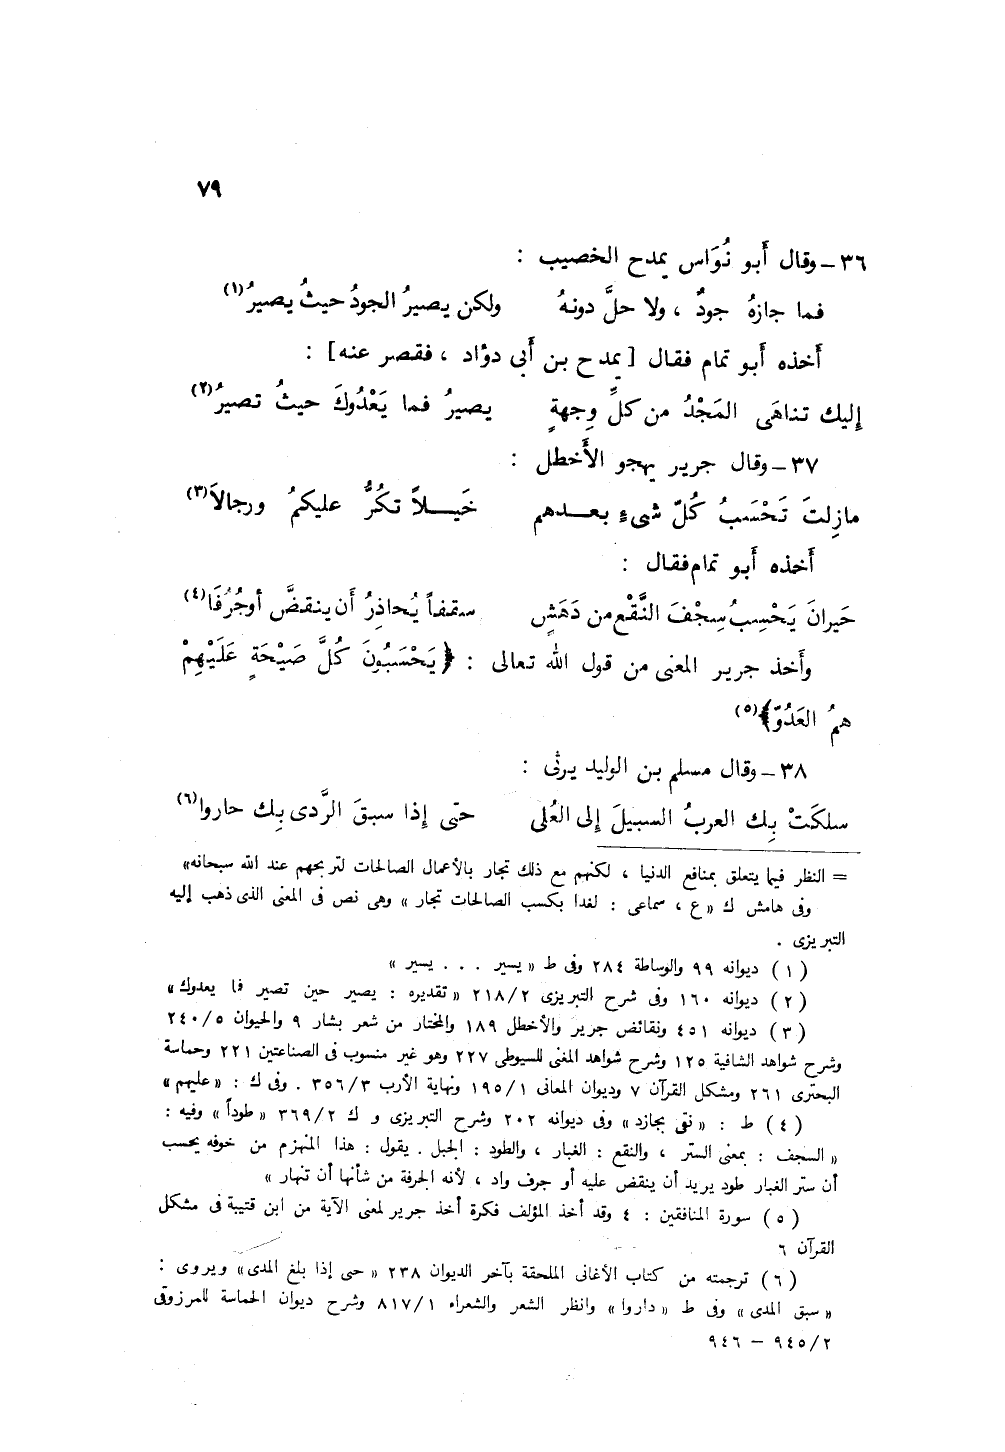 ٧٩
٣٦ – وقال أَبو نُوَاس يمدح الخصيب :
فما جازهُ جودٌ ، ولا حلَّ دونهُ ولكن يصيرُ الجودُ حيثُ يصيرُ(١)
أَخذه أَبو تمام فقال [ يمدح بن أَبى دؤاد ، فقصر عنه] :
إليك تناهَى المَجْدُ من كلِّ وِجهةٍ يصيرُ فما يَعْدُوكَ حيثُ تصيرُ(٢)
٣٧ – وقال جرير يهجو الأَخطل :
مازِلتَ تَحْسَبُ كُلّ شىءٍ بعدهم خَيلاً تكُرُّ عليكمُ ورجالاَ(٣)
أَخذه أَبو تمام فقال :
حَيرانَ يَحْسِبُ سِجْفَ النَّقْعِ من دَهَشٍ سقفاً يُحاذِرُ أَن ينقضَّ أوجُرُفَا(٤)
وأَخذ جرير المعنى من قول الله تعالى : ﴿يَحْسَبُونَ كُلَّ صَيْحَةٍ عَلَيْهِمْ
همُ العَدُوّ﴾(٥)
٣٨ – وقال مسلم بن الوليد يرثى :
سلكَتْ بِك العربُ السبيلَ إلى العُلى حتى إذا سبقَ الرَّدى بِك حاروا(٦)
= النظر فيما يتعلق بمنافع الدنيا ، لكنهم مع ذلك تجار بالأعمال الصالحات لتربحهم عند الله سبحانه»
وفى هامش ك «ع ، سماعى : لغدا بكسب الصالحات تجار » وهى نص فى المعنى الذى ذهب إليه
التبريزى .
(١) ديوانه ٩٩ والوساطة ٢٨٤ وفى ط «يسير . . . يسير »
(٢) ديوانه ١٦٠ وفى شرح التبريزى ٢١٨/٢ «تقديره : يصير حين تصير فما يعدوك»
(٣) ديوانه ٤٥١ ونقائض جرير والأخطل ١٨٩ والمختار من شعر بشار ٩ والحيوان ٢٤٠/٥
وشرح شواهد الشافية ١٢٥ وشرح شواهد المغنى للسيوطى ٢٢٧ وهو غير منسوب فى الصناعتين ٢٢١ وحماسة
البحترى ٢٦١ ومشكل القرآن ٧ وديوان المعانى ١٩٥/١ ونهاية الأرب ٣٥٦/٣ . وفى ك : «عليهم»
(٤) ط : «نقى بجازد» وفى ديوانه ٢٠٢ وشرح التبريزى و ك ٣٦٩/٢ «طوداً» وفيه :
«السجف : بمعنى الستر ، والنقع : الغبار ، والطود : الجبل . يقول : هذا المنهزم من خوفه يحسب
أن ستر الغبار طود يريد أن ينقض عليه أو جرف واد ، لأنه الجرفة من شأنها أن تنهار »
(٥) سورة المنافقين : ٤ وقد أخذ المؤلف فكرة أخذ جرير لمعنى الآية من ابن قتيبة فى مشكل
القرآن ٦
(٦) ترجمته من كتاب الأغانى الملحقة بآخر الديوان ٢٣٨ «حتى إذا بلغ المدى» ويروى :
«سبق المدى» وفى ط «داروا» وانظر الشعر والشعراء ٨١٧/١ وشرح ديوان الحماسة للمرزوقى
٩٤٥/٢ – ٩٤٦